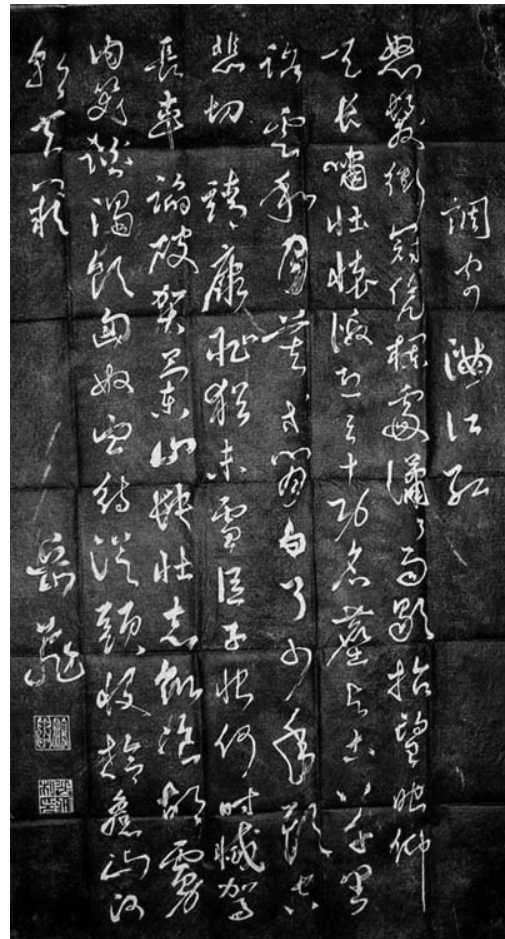 調寄滿江紅
怒髮衝冠憑欄處瀟々雨歇抬望眼仰
天長嘯壯懷激烈三十功名塵與土八千里
路雲和月莫等閒白了少年頭空
悲切 靖康恥猶未雪臣子恨何時滅駕
長車踏破賀蘭山缺壯志飢餐胡虜
肉笑談渴飲匈奴血待從頭收拾舊山河
朝天闕 岳飛